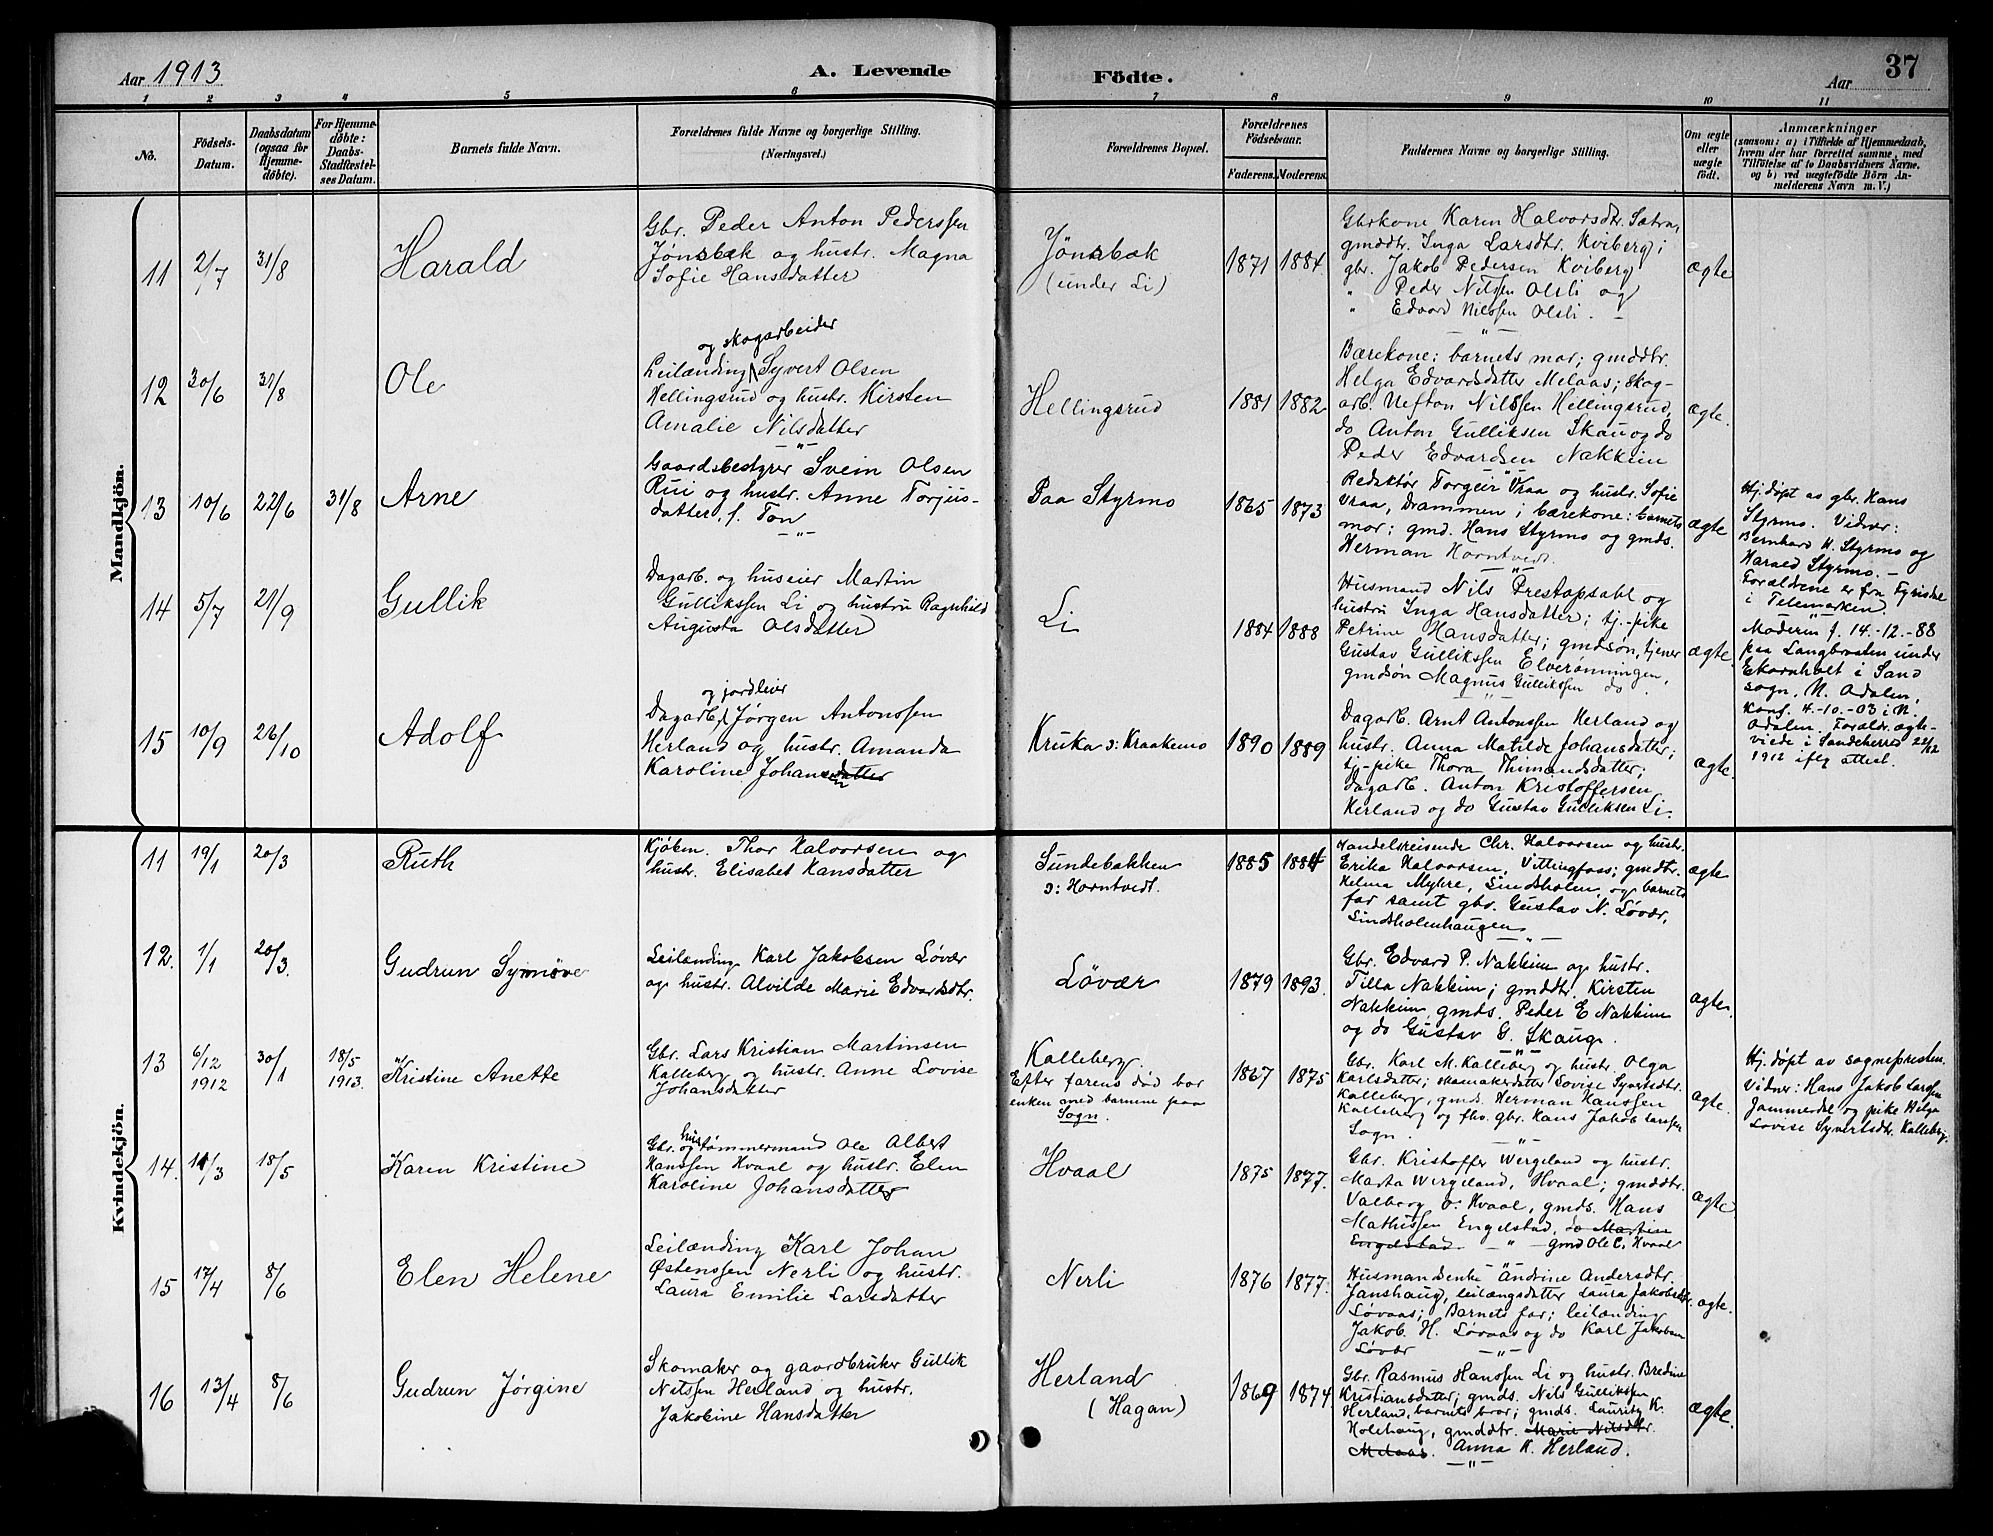 Aar 1913
A. Levende
Födte.
Aar
37
1 2 3 4 5 6 7 8 9 10 11
No.
Födsels-
Datum.
Daabsdatum
(ogsaa for
Hjemme-
döbte).
For Hjemme-
döbte:
Daabs-
Stadfæstel-
ses Datum.
Barnets fulde Navn.
Forældrenes fulde Navne og borgerlige Stilling.
(Næringsvei.)
Forældrenes Bopæl.
Forældrenes
Födselsaar.
Faderens. Moderens.
Faddernes Navne og borgerlige Stilling.
Om ægte
eller
uægte
födt.
Anmærkninger
(saasom: a) i Tilfælde af Hjemmedaab,
hvem der har forrettet samme, med
Tilföielse af to Daabsvidners Navne,
og b) ved uægtefödte Börn An-
melderens Navn m. V.)
Mandkjön.
11 2/7 31/8
Harald
Gbr. Peder Anton Pederssen
Jønsbæk og hustr. Magna
Sofie Hansdatter
Jönsbæk
(under Li)
1871 1884
Gbrkone Karen Halvorsdtr. Sætra,
gmddtr. Inga Larsdtr. Kviberg;
gbr. Jakob Pedersen Kviberg
" Peder Nilsen Olsli og
" Edvard Nilssen Olsli. -
ægte
12 30/6 31/8
Ole
og skogarbeider
Leilænding Syvert Olsen
Hellingsrud og hustr. Kirsten
Amalie Nilsdatter
Hellingsrud
1881 1882
Bærekone: barnets mor; gmddtr.
Helga Edvardsdatter Melaas; skog-
arb. Nefton Nilssen Hellingsrud,
do Anton Gulliksen Skau og do
Peder Edvardsen Nakkim
ægte.
13 10/6 22/6 31/8
Arne
Gaardsbestyrer Svein Olsen
Rui og hustr. Anne Torjus-
datter, f. Ton
Paa Styrmo
1865 1873
Redaktør Torgeir Vraa og hustr. Sofie
Vraa, Drammen; bærekone: barnets
mor; gmd. Hans Styrmo og gmds.
Herman Horntvedt.
ægte
Hj.døpt av gbr. Hans
Styrmo. Vidner:
Bernhard H. Styrmo og
Harald Styrmo. -
Forældrene er fra Fyrisdal
i Telemarken.
14 5/7 21/9
Gullik
Dagarb. og huseier Martin
Gullikssen Li og hustru Ragnhild
Augusta Olsdatter
Li
1884 1888
Husmand Nils Prestopsahl og
hustru Inga Hansdatter; tj.-pike
Petrine Hansdatter; gmdsøn, tjener
Gustav Gullikssen Elverønningen,
gmdsøn Magnus Gulliksen do.
ægte
Moderen f. 14.-12.-88
paa Langbraaten under
Ekornholt i Sand
sogn, N. Odalen,
konf. 4.-10.-03 i N.
Odalen. Forældr. ægte-
viede i Sandeherred 22/12
1912 iflg attest.
15 10/9 26/10
Adolf
og jordleier
Dagarb. Jørgen Antonssen
Herland og hustr. Amanda
Karoline Johansdatter
Kruka ɔ: Kraakemo
1890 1889
Dagarb. Arnt Antonssen Herland og
hustr. Anna Matilde Johansdatter;
tj.-pike Thora Thimandsdatter;
dagarb. Anton Kristoffersen
Herland og do Gustav Gulliksen Li.
ægte.
Kvindekjön.
11 19/1 20/3
Ruth
Kjøbm. Thor Halvorsen og
hustr. Elisabet Hansdatter
Sundebakken
ɔ: Horntvedt.
1885 1884
Handelsreisende Chr. Halvorsen og hustr.
Erika Halvorsen, Vittingfoss; gmddtr.
Helma Myhre, Lindsholm, og barnets
far samt gbr. Gustav N. Løvær,
Lindsholmhaugen
ægte
12. 1/1 20/3.
Gudrun Synnöve
Leilænding Karl Jakobsen Løvær
og hustr. Alvilde Marie Edvardsdtr.
Løvær
1879 1893.
Gbr. Edvard P. Nakkim og hustr.
Tilla Nakkim; gmddtr. Kirsten
Nakkim, gmds. Peder E Nakkim
og do Gustav G. Skaug.
ægte.
13 6/12 1912 30/1 18/5 1913.
Kristine Anette
Gbr. Lars Kristian Martinsen
Kalleberg og hustr. Anne Lovise
Johansdatter
Kalleberg.
Efter farens död bor
enken med barnene paa
Sogn.
1867 1875
Gbr. Karl M. Kalleberg og hustr. Olga
Karlsdatter; skomakerdatter Lovise Syvertsdtr.
Kalleberg, gmds. Herman Hanssen
Kalleberg og fhv. gbr. Hans Jakob Larssen
Sogn.
ægte.
Hj.døpt av sognepresten.
Vidner: Hans Jakob Larssen
Jammerdal og pike Helga
Lovise Syvertsdtr. Kalleberg.
14. 11/3 18/5
Karen Kristine
Gbr. og hustømmermand Ole Albert
Hanssen Hvaal og hustr. Elen
Karoline Johansdatter
Hvaal
1875 1877.
Gbr. Kristoffer Wergeland og hustr.
Marta Wergeland, Hvaal; gmddtr.
Valborg O. Hvaal, gmds. Hans
Mathissen Engelstad, do Martin
Engelstad - " - gmd Ole C. Hvaal
ægte
15 17/4 8/6
Elen Helene
Leilænding Karl Johan
Østenssen Nerli og hustr.
Laura Emilie Larsdatter
Nerli
1876 1877.
Husmandsenke Andrine Andersdtr.
Janshaug, leilængsdatter Laura Jakobsdtr.
Løvaas; Barnets far; leilænding
Jakob H. Løvaas og do Karl Jakobsen
Løvær
ægte.
16 13/4 8/6
Gudrun Jørgine
Skomaker og gaardbruker Gullik
Nilssen Herland og hustr.
Jakobine Hansdatter
Herland
(Hagan)
1869 1874.
Gbr. Rasmus Hanssen Li og hustr. Bredine
Kristiansdatter; gmds. Nils Gullikssen
Herland, barnets bror; gmds. Lauritz K.
Holehaug, gmddtr. Marie Nilsdtr.
Melaas. Anna K. Herland.
ægte.